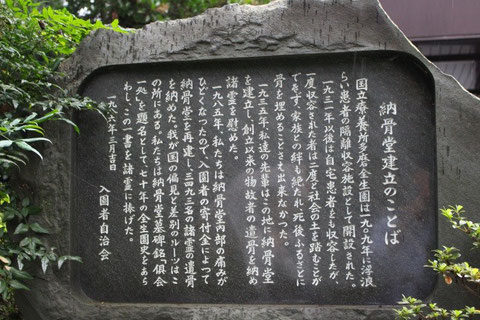 納骨堂建立のことば
国立療養所多磨全生園は一九〇九年に浮浪
らい患者の隔離収容施設として開設された。
一九三一年以後は自宅患者をも収容したが、
一度収容された者は二度と社会の土を踏むことが
できず、家族との絆も絶たれ死後ふるさとに
骨を埋めることさえも出来なかった。
一九三五年、私達の先輩はこの地に納骨堂
を建立し、創立以来の物故者の遺骨を納め
諸霊を慰めた。
一九八五年、私たちは納骨堂内部の痛みが
ひどくなったので、入園者の寄付金によって
納骨堂を再建し、三四九三名の諸霊の遺骨
を納めた。我が国の偏見と差別のルーツはこ
の所にある。私たちは納骨堂墓碑銘「倶会
一処」を題名として、七十年の全生園史をあら
わし、この一書を諸霊に捧げた。
一九八六年三月吉日
入園者自治会